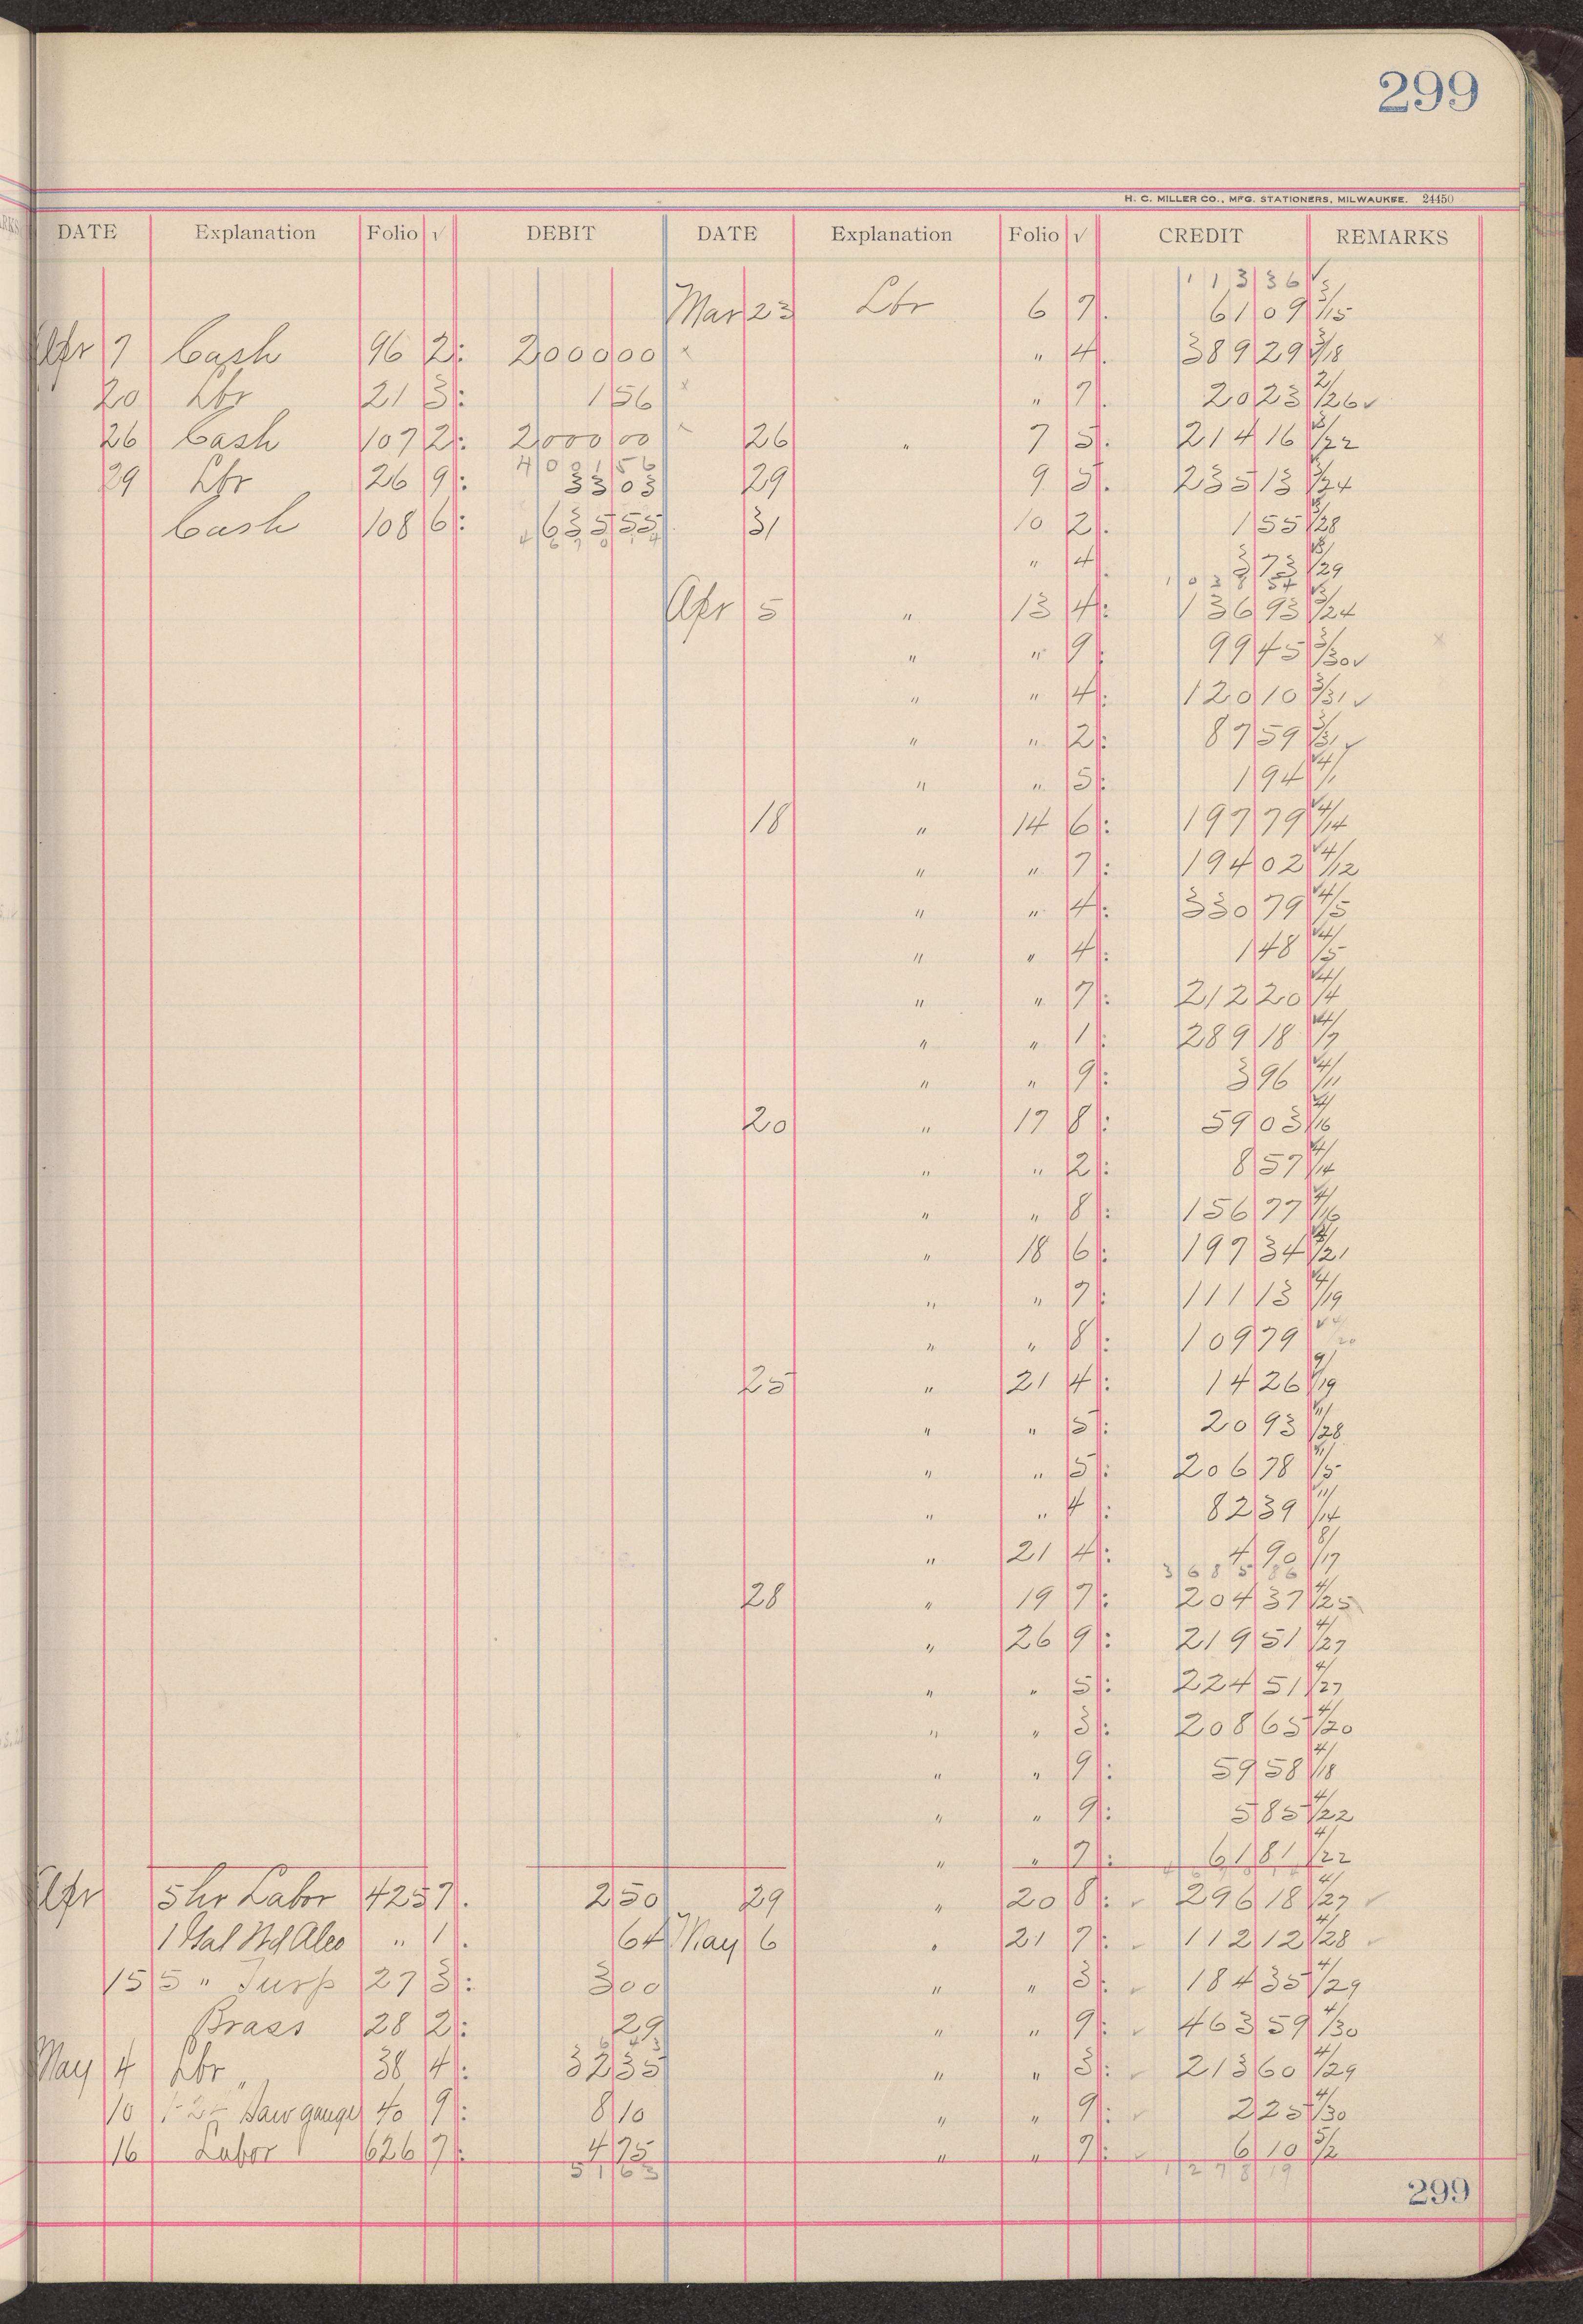 299
H. C. MILLER CO., MFG. STATIONERS, MILWAUKEE. 24450
DATE Explanation Folio √ DEBIT DATE Explanation Folio √ CREDIT REMARKS
1 1 3 36
Mar 23 Lbr 6 7. 61 09 3/15
Apr 7 Cash 96 2: 2000 00 x " 4. 389 29 3/18
20 Lbr 21 3: 1 56 x " 7. 20 23 2/26 ✓
26 Cash 107 2: 2000 00 26 " 7 5. 214 16 3/22
4 0 0 1 5 6
29 Lbr 26 9: 33 03 29 9 5. 235 13 3/24
Cash 108 6: 635 55 31 10 2. 1 55 3/28
" 4. 3 73 3/29
1 0 3 8 54
Apr 5 " 13 4: 136 93 3/24
" " 9: 99 45 3/30 ✓
" " 4: 120 10 3/31 ✓
" " 2: 87 59 3/31 ✓
" " 5: 1 94 4/1
18 " 14 6: 197 79 4/14
" " 7: 194 02 4/12
" " 4: 330 79 4/5
" " 4: 1 48 4/5
" " 7: 212 20 4/4
" " 1: 289 18 4/7
" " 9: 3 96 4/11
20 " 17 8: 59 03 4/16
" " 2: 8 57 4/14
" " 8: 156 77 4/16
" 18 6: 197 34 4/21
" " 7: 111 13 4/19
" " 8: 109 79 4/20
25 " 21 4: 14 26 /19
" " 5: 20 93 /28
" " 5: 206 78 /5
" " 4: 82 39 /14
" 21 4: 4 90 /17
3 6 8 5 86
28 " 19 7: 204 37 4/25
" 26 9: 219 51 4/27
" " 5: 224 51 4/27
" " 3: 208 65 4/20
" " 9: 59 58 4/18
" " 9: 5 85 4/22
" " 7: 61 81 4/22
Apr 5 hr Labor 425 7. 2 50 29 " 20 8: ✓ 296 18 4/27 ✓
1 Gal Wd Alco " 1. 64 May 6 " 21 7: ✓ 112 12 4/28 ✓
15 5 " Turp 27 3: 3 00 " " 3: ✓ 184 35 4/29
Brass 28 2: 29 " " 9: ✓ 463 59 4/30
May 4 Lbr 38 4: 32 35 " " 3: ✓ 213 60 4/29
10 Saw gauge 40 9: 8 10 " " 9: ✓ 2 25 4/30
16 Labor 626 7: 4 75 " " 7: ✓ 6 10 5/2
5 1 6 3 1 2 7 8 19
299